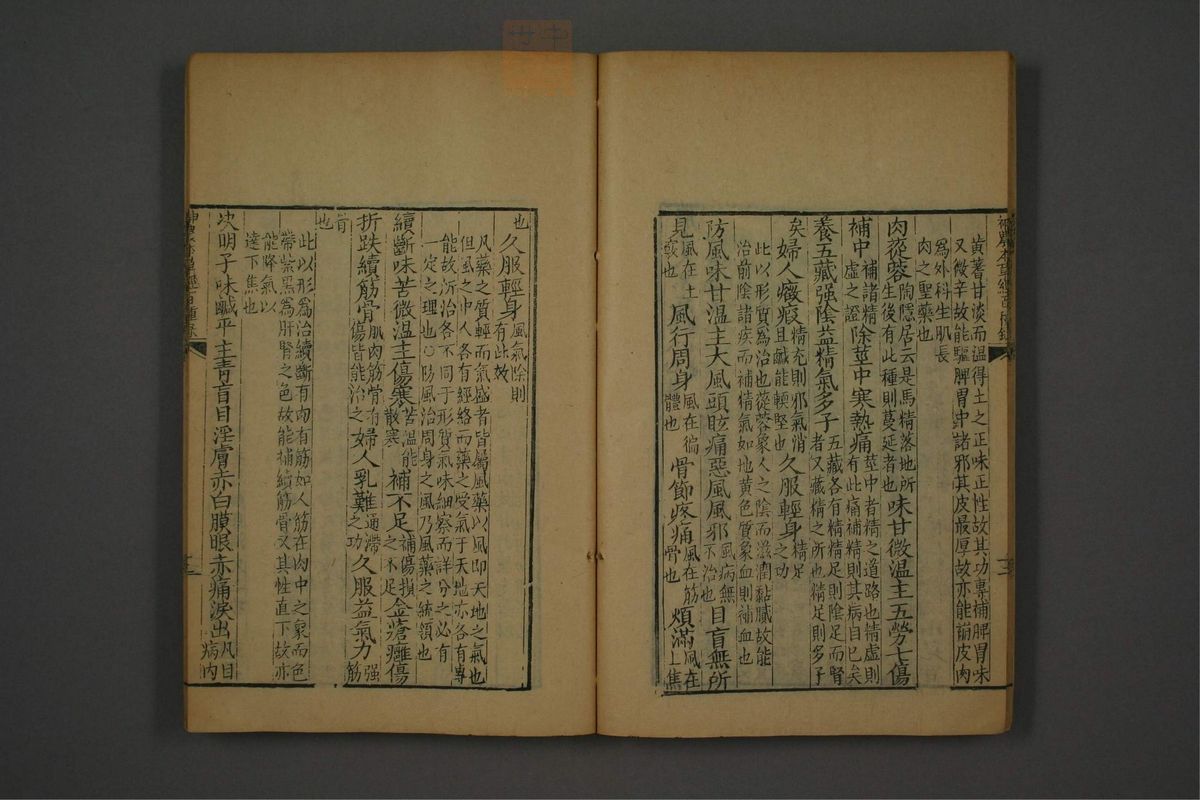 黃蓍甘淡而溫得土之正味正性故其功專補脾胃味
又微辛故能驅脾胃中諸邪其皮最厚故亦能〓皮肉
為外科生肌長
肉之聖藥也
肉蓯蓉陶隱居云是馬精落地所生後有此種則蔓延者也味甘微溫主五勞七傷
補中補諸精虛之證除莖中寒熱痛莖中者精之道路也精虛則有此痛補精則其病自已矣
養五藏强陰益精氣多子五藏各有精精足則陰足而腎者又藏精之所也精足則多子
矣婦人癥瘕精充則邪氣消且鹹能輭堅也久服輕身精足之功
此以形質為治也蓯蓉象人之陰而滋潤黏膩故能
治前陰諸疾而補精氣如地黃色質象血則補血也
防風味甘溫主大風頭眩痛惡風風邪風病無不治也目盲無所
見風在上竅也風行周身風在徧體也骨節疼痛風在筋骨也煩滿風在上焦
也久服輕身風氣除則有此效
凡藥之質輕而氣盛者皆屬風藥以風即天地之氣也
但風之中人各有經絡而藥之受氣于天地亦各有專
能故所治各不同于形質氣味細察而詳分之必有
一定之理也○防風治周身之風乃風藥之統領也
續斷味苦微溫主傷寒苦溫能散寒補不足補傷損之不足金瘡癰傷
折跌續筋骨肌肉筋骨有傷皆能治之婦人乳難通滯之功久服益氣力强筋
骨也
此以形為治續斷有肉有筋如人筋在肉中之象而色
帶紫黑為肝腎之色故能補續筋骨又其性直下故亦
能降氣以
達下焦也
決明子味鹹平主青盲目淫膚赤白膜眼赤痛淚出凡目病內